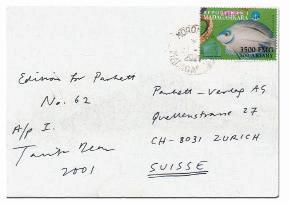 REPOBLIKAN'I
MADAGASIKARA
3500 FMG
Edition for Parkett
No. 62
A/p I.
2001
Parkett-Verlag AG
Quellenstrasse 27
CH-8031 ZURICH
SUISSE